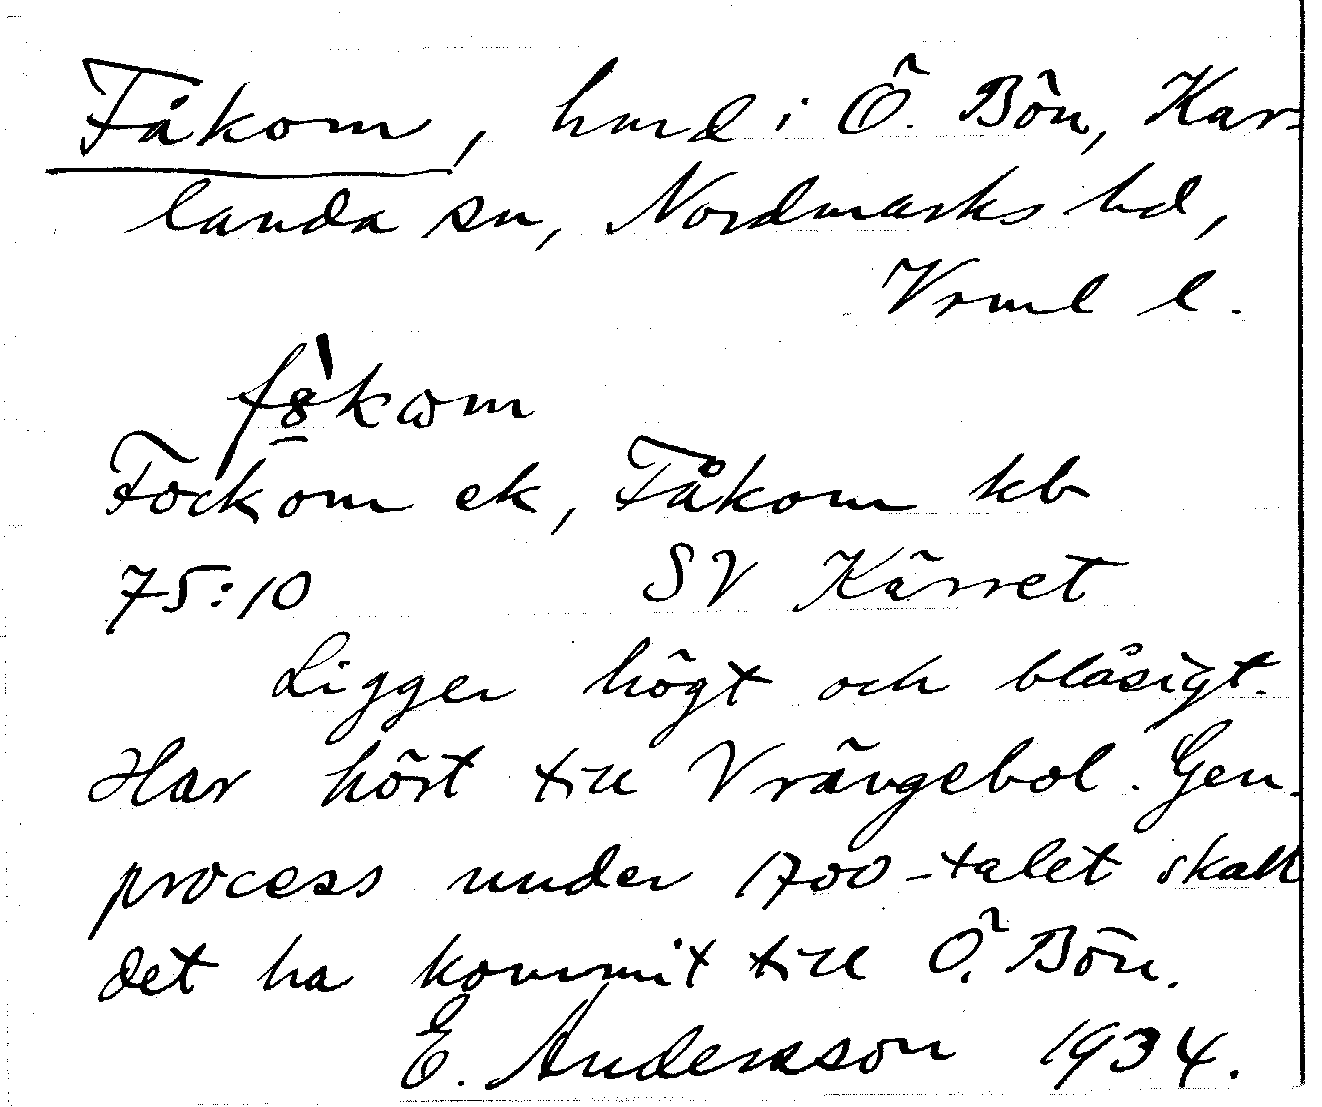 Fåkom, hmd i Ö. Bön, Kar-
landa sn, Nordmarks hd,
Vrml l.
Fockom ek, Fåkom kb
75:10 SV Kärret
Ligger högt och blåsigt.
Har hört till Vrängebol. Gen.
process under 1700-talet skall
det ha kommit till Ö. Bön.
E. Andersson 1934.